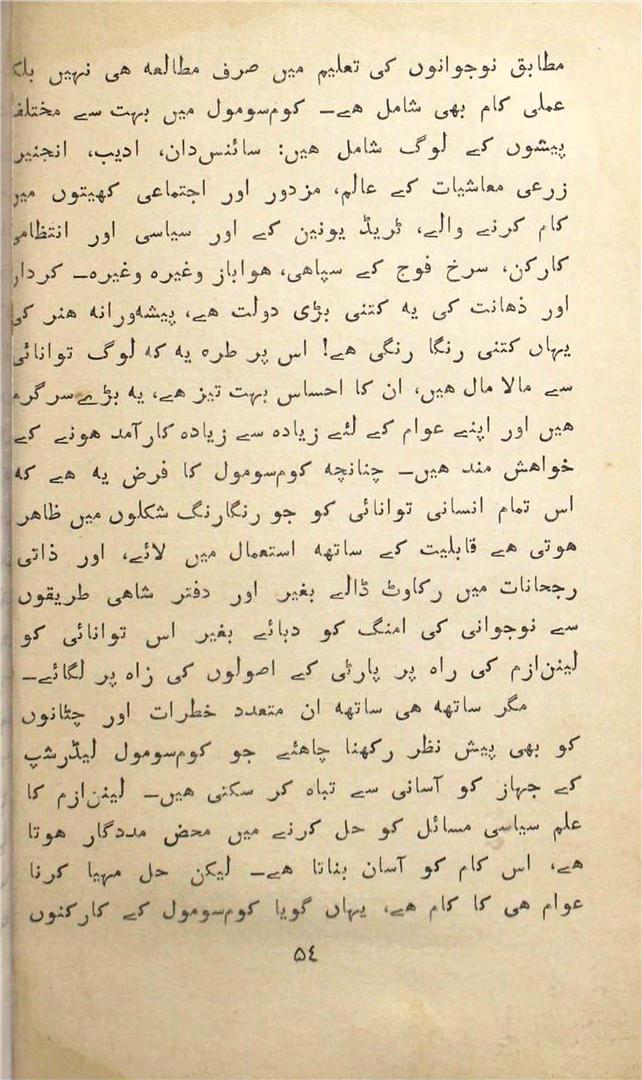 مطابق نوجوانوں کی تعلیم میں صرف مطالعہ ھی نہیں بلکہ
عملی کام بھی شامل ھے۔ کوم‌سومول میں بہت سے مختلف
پیشوں کے لوگ شامل ھیں: سائنس‌داں، ادیب، انجنیر،
زرعی معاشیات کے عالم، مزدور اور اجتماعی کھیتوں میں
کام کرنے والے، ٹریڈ یونین کے اور سیاسی اور انتظامی
کارکن، سرخ فوج کے سپاھی، ھواباز وغیرہ وغیرہ۔ کردار
اور ذھانت کی یہ کتنی بڑی دولت ھے، پیشہ‌ورانہ ھنر کی
یہاں کتنی رنگا رنگی ھے! اس پر طرہ یہ کہ لوگ توانائی
سے مالا مال ھیں، ان کا احساس بہت تیز ھے، یہ بڑے سرگرم
ھیں اور اپنے عوام کے لئے زیادہ سے زیادہ کارآمد ھونے کے
خواھش مند ھیں۔ چنانچہ کوم‌سومول کا فرض یہ ھے کہ
اس تمام انسانی توانائی کو جو رنگارنگ شکلوں میں ظاھر
ھوتی ھے قابلیت کے ساتھہ استعمال میں لائے، اور ذاتی
رجحانات میں رکاوٹ ڈالے بغیر اور دفتر شاھی طریقوں
سے نوجوانی کی امنگ کو دبائے بغیر اس توانائی کو
لینن‌ازم کی راہ پر پارٹی کے اصولوں کی راہ پر لگائے۔
مگر ساتھہ ھی ساتھہ ان متعدد خطرات اور چٹانوں
کو بھی پیش نظر رکھنا چاھئے جو کوم‌سومول لیڈرشپ
کے جہاز کو آسانی سے تباہ کر سکتی ھیں۔ لینن‌ازم کا
علم سیاسی مسائل کو حل کرنے میں محض مددگار ھوتا
ھے، اس کام کو آسان بناتا ھے۔ لیکن حل مہیا کرنا
عوام ھی کا کام ھے، یہاں گویا کوم‌سومول کے کارکنوں
۵٤